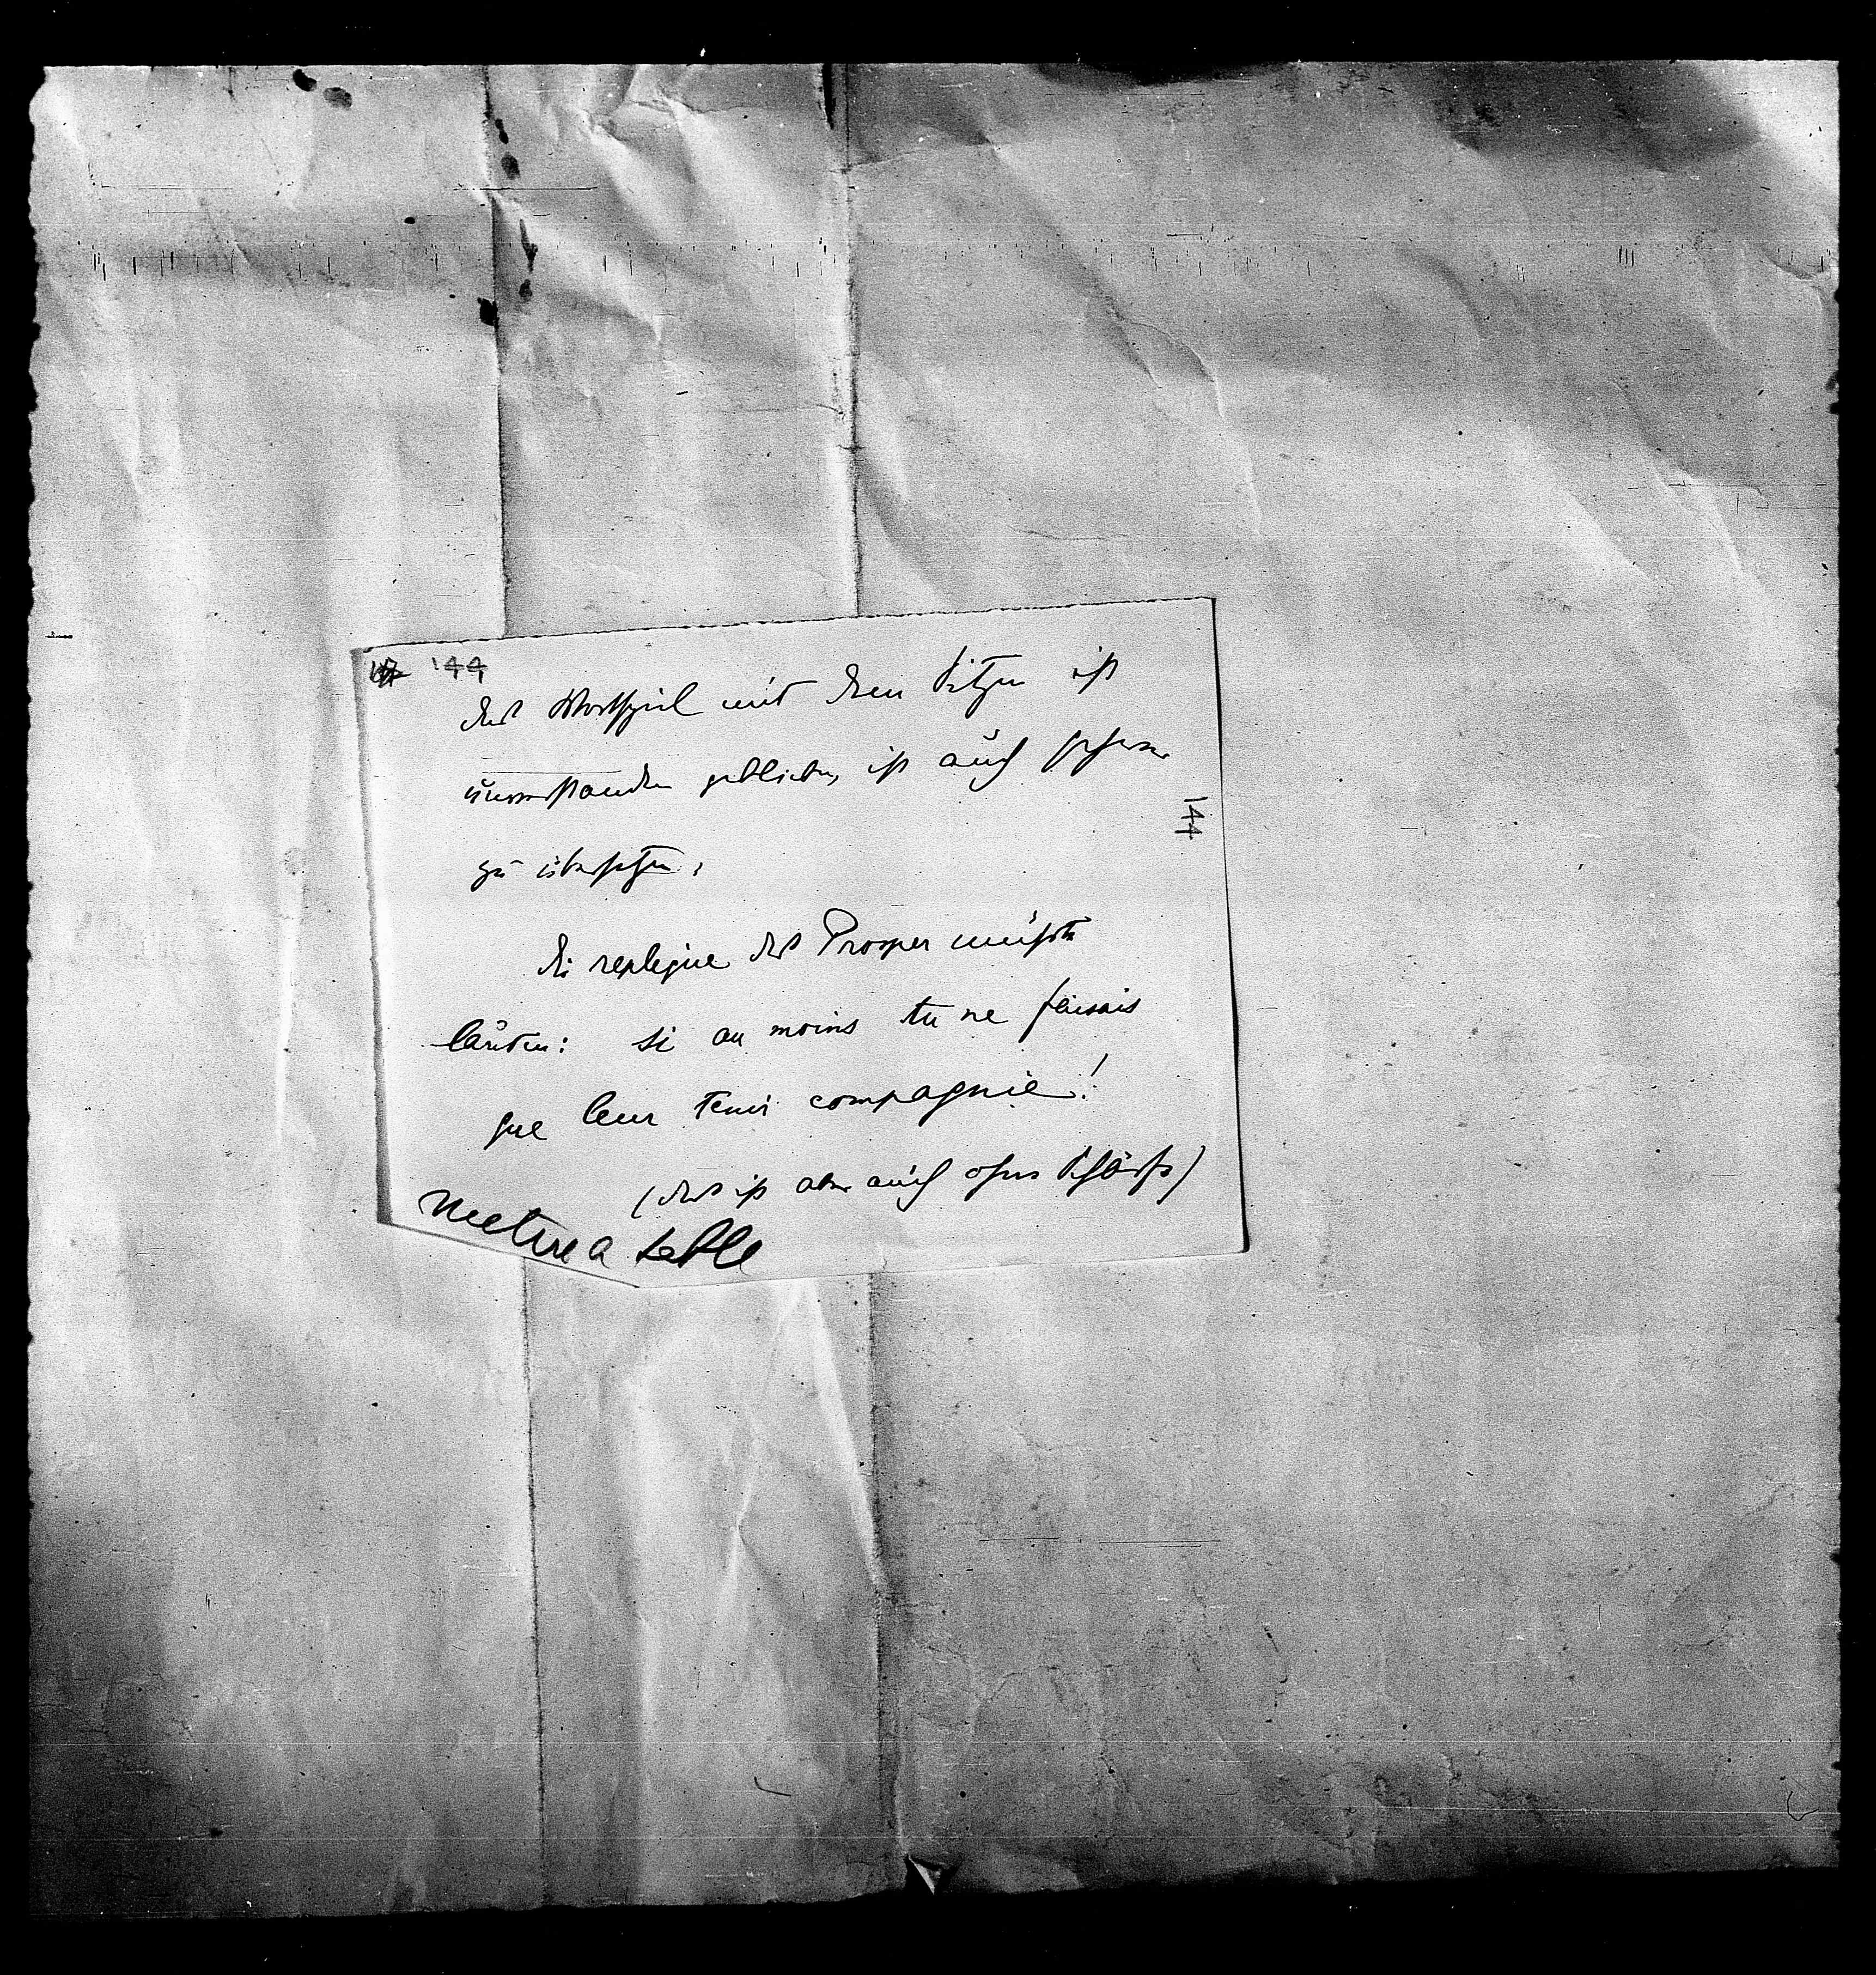 144
das Wortspiel mit dem Sitzen ist
unverstanden geblieben, ist auch schwer
zu übersetzen.
die replique des Prosper müsste
läuten: si au moins tu ne faisais
que leur tenir compagnie!
(das ist aber auch ohne Schärfe)
mettre a table
144